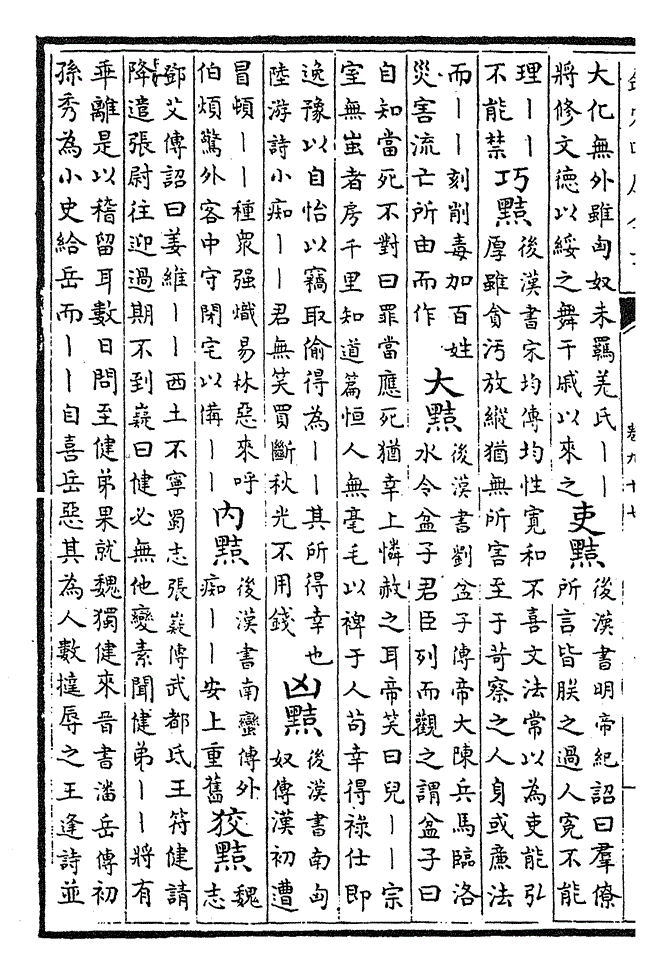 卷九十七
大化無外雖匈奴未羈羌氏丨丨
將修文德以綏之舞干戚以來之
吏黠
後漢書明帝紀詔曰羣僚
所言皆朕之過人寃不能
理丨丨
不能禁
巧黠
後漢書宋均傳均性寬和不喜文法常以為吏能弘
厚雖貪汚放縱猶無所害至于苛察之人身或廉法
而丨丨刻削毒加百姓
災害流亡所由而作
大黠
後漢書劉盆子傳帝大陳兵馬臨洛
水令盆子君臣列而觀之謂盆子曰
自知當死不對曰罪當應死猶幸上憐赦之耳帝笑曰兒丨丨宗
室無蚩者房千里知道篇恒人無毫毛以裨于人苟幸得祿仕即
逸豫以自怡以竊取偷得為丨丨其所得幸也
陸游詩小痴丨丨君無笑買斷秋光不用錢
凶黠
後漢書南匈
奴傳漢初遭
冒頓丨丨種衆强熾易林惡來呼
伯煩驚外客中守閉宅以備丨丨
內黠
後漢書南蠻傳外
痴丨丨安上重舊
狡黠
魏
志
鄧艾傳詔曰姜維丨丨西土不寧蜀志張嶷傳武都氐王符健請
降遣張尉往迎過期不到嶷曰健必無他變素聞健弟丨丨將有
乖離是以稽留耳數日問至健弟果就魏獨健來晉書潘岳傳初
孫秀為小史給岳而丨丨自喜岳惡其為人數撻辱之王逢詩並